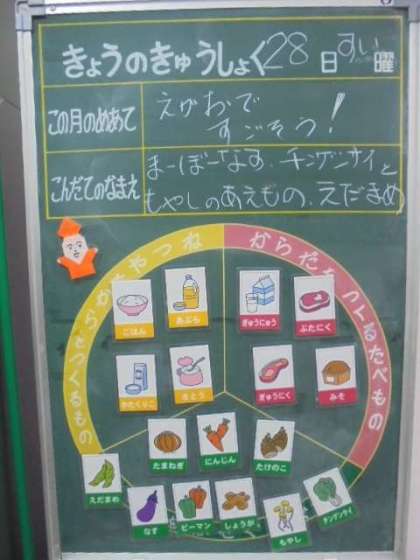 きょうのきゅうしょく 28日 すい曜
この月のめあて
えがおで
すごそう!
こんだてのなまえ
まーぼーなす、チンゲンサイと
もやしのあえもの、えだまめ
からだをつくるたべもの
ごはん
あぶら
ぎゅうにゅう
ぶたにく
かたくりこ
さとう
ぎゅうにく
みそ
たまねぎ
にんじん
たけのこ
えだまめ
なす
ピーマン
しょうが
もやし
チンゲンサイ